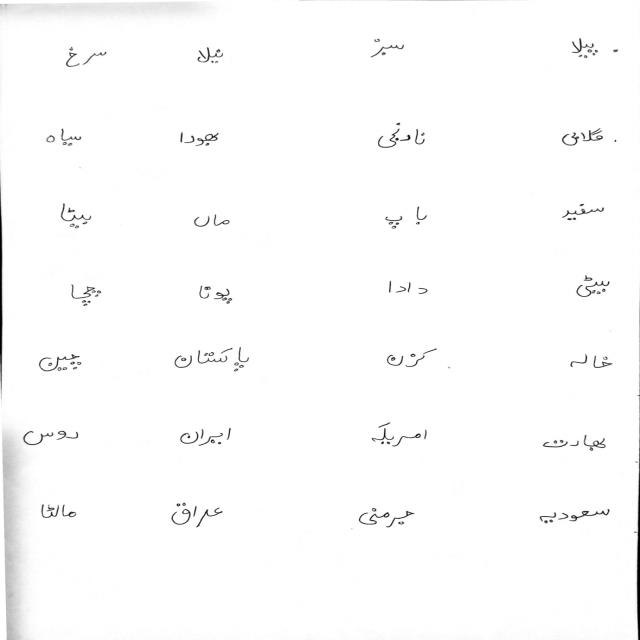 پیلا سبز نیلا سرخ
گلابی نارنجی بھورا سیاہ
سفید باپ ماں بیٹا
بیٹی دادا پوتا چچا
خالہ کزن پاکستان چین
بھارت امریکہ ایران روس
سعودیہ جرمنی عراق مالٹا